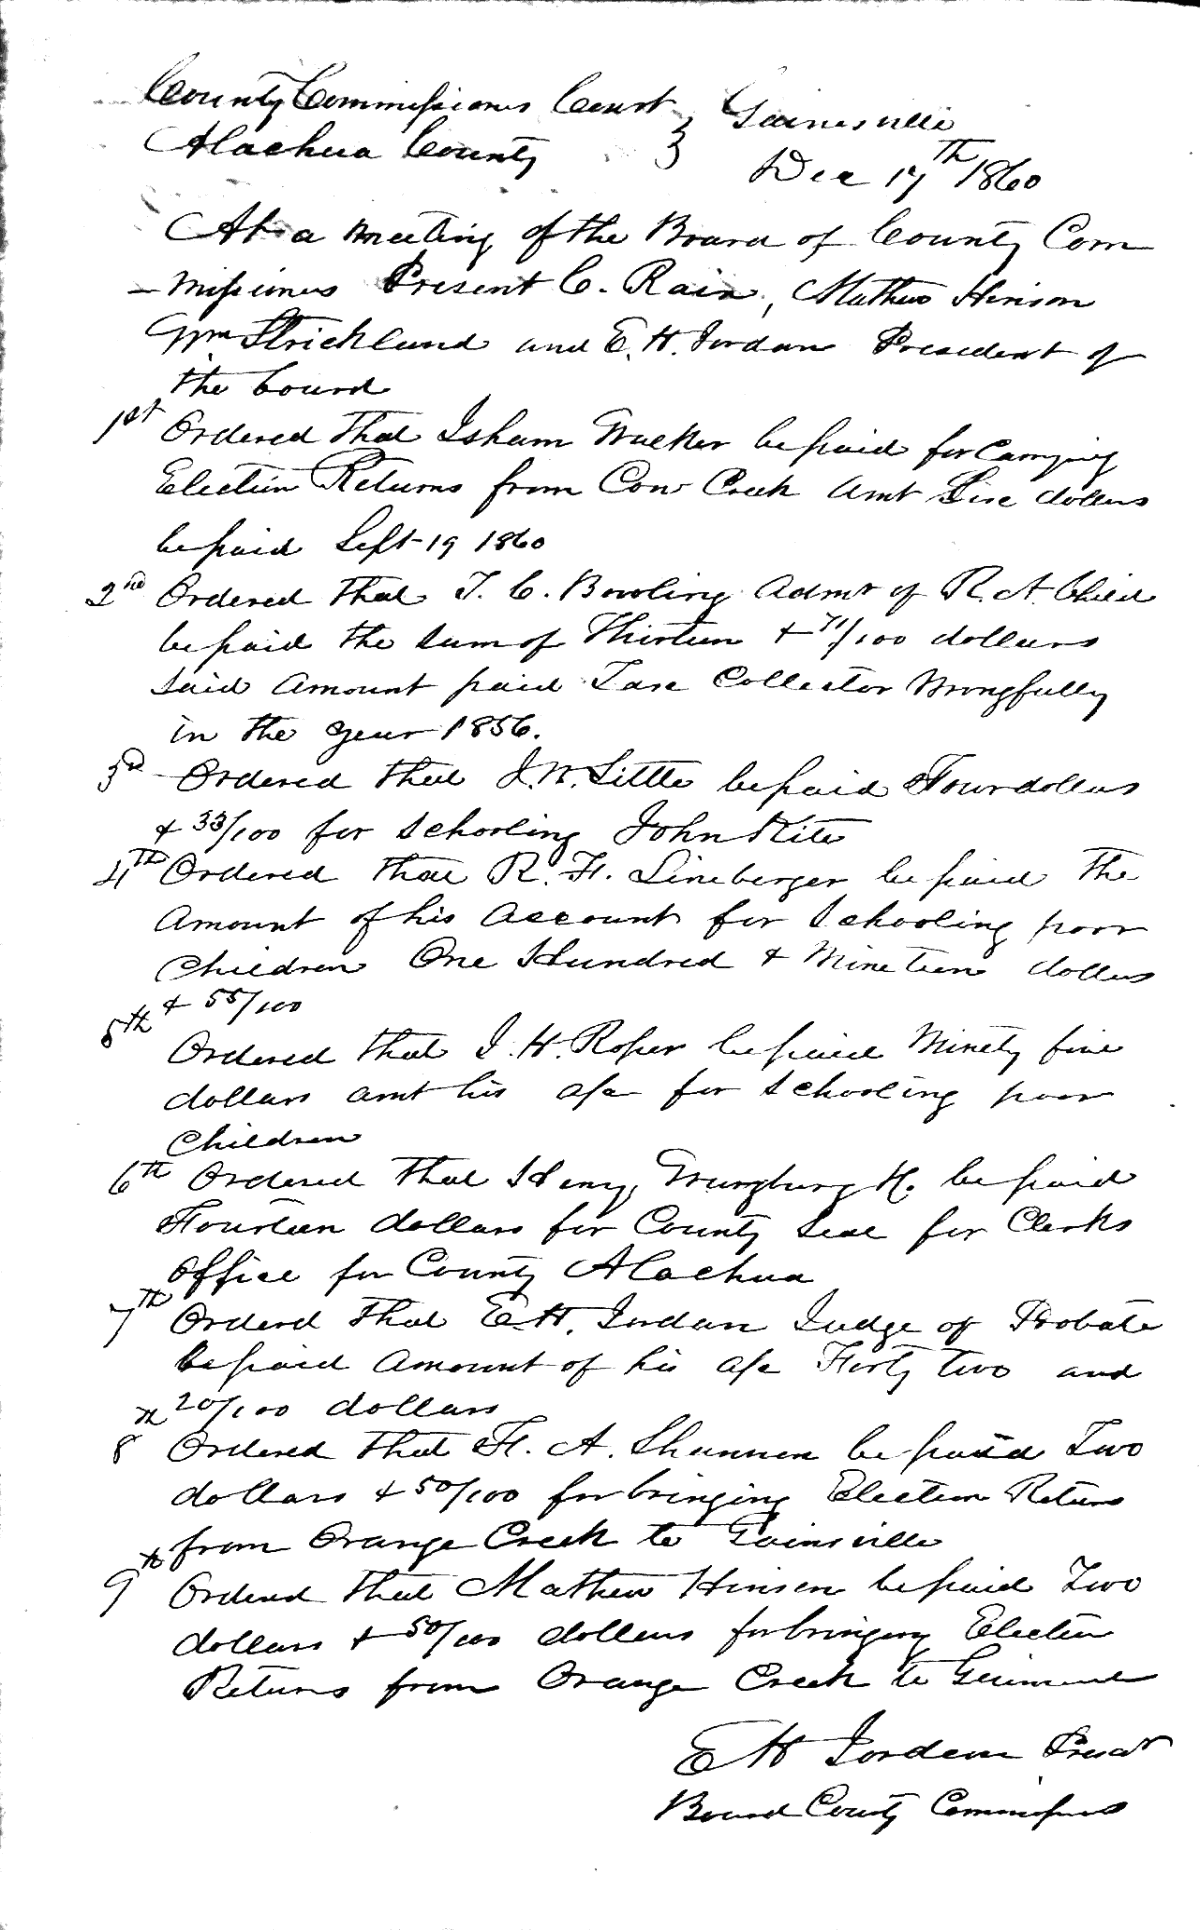 County Commissioners Court } Gainesville
Alachua County Dec 17th 1860
At a meeting of the Board of County Com
- missioners Present C. Rain, Mathew Hinson
Wm Strickland and E. H. Jordan President of
the Court
1st Ordered that Isham Walker be paid for Carrying
Election Returns from Cow Creek amt Five dollars
be paid Sept 19 1860
2nd Ordered that T. C. Bowling Admr of R. A. Child
be paid the sum of Thirteen + 71/100 dollars
said amount paid Tax Collector Wrongfully
in the year 1856.
3rd Ordered that J. W. Little be paid Four dollars
+ 33/100 for schooling John Kite
4TH Ordered that R. H. Lineberger be paid the
amount of his account for schooling poor
Children One Hundred + Nineteen dollars
+ 55/100
5th
Ordered that J. H. Roper be paid Ninety five
dollars amt his a/c for schooling poor
Children
6th Ordered that Henry be paid
Fourteen dollars for County Seal for Clerks
Office for County Alachua
7TH Ordered that E. H. Jordan Judge of Probate
be paid amount of his a/c Forty two and
20/100 dollars
8th Ordered that H. A. Shannon be paid Two
dollars + 50/100 for bringing Election Returns
from Orange Creek to Gainsville
9th Ordered that Mathew Hinson be paid Two
dollars + 50/100 dollars for bringing Election
Returns from Orange Creek to
E H Jordan Presdt
Board County Commissioners